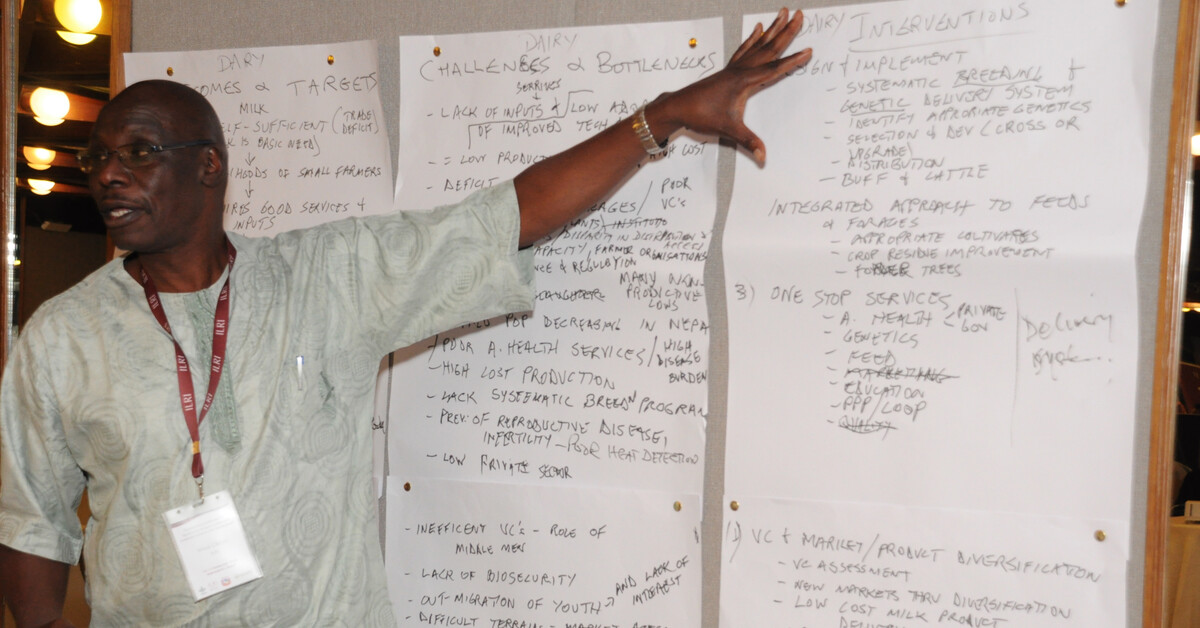 DARY
COMES & TARGETS
MILK
LF-SUFFICIENT (TRADE
DEFICIT)
K IS BASIC NEED)
↓
HOODS OF SMALL FARMERS
↓
IRES GOOD SERVICES &
INPUTS
DAIRY
CHALLENGES & BOTTLENECKS
SERVICES
- LACK OF INPUTS & LOW
OF IMPROVED TECH
- = LOW PRODUC HIGH COST
- DEFICIT
/ POOR
VC'S
DISPARITY IN DISTRIBUTION &
ACCESS
APACITY, FARMER ORGANISATIONS
NCE & REGULATION
MANY NON-
PRODUCTIVE
COWS
POP DECREASING IN NEPA
/ POOR A. HEALTH SERVICES / HIGH
DISEASE
BURDEN
- HIGH COST PRODUCTION
- LACK SYSTEMATIC BREED'N PROGRAM
- PREV. OF REPRODUCTIVE DISEASE,
INFERTILITY - POOR HEAT DETECTION
- LOW PRIVATE SECTOR
- INEFFICENT VC'S - ROLE OF
MIDDLE MEN
- LACK OF BIOSECURITY
- OUT-MIGRATION OF YOUTH → AND LACK OF
INTEREST
- DIFFICULT TERRAIN - MARKET ACCESS
DAIRY INTERVENTIONS
SIGN & IMPLEMENT
- SYSTEMATIC BREEDING &
GENETIC DELIVERY SYSTEM
- IDENTIFY APPROPRIATE GENETICS
- SELECTION & DEV (CROSS OR
UPGRADE)
- DISTRIBUTION
- BUFF & CATTLE
INTEGRATED APPROACH TO FEEDS
& FORAGES
- APPROPRIATE CULTIVARES
- CROP RESIDUE IMPROVEMENT
- FODDER TREES
3) ONE STOP SERVICES
- A. HEALTH - PRIVATE
- GOV
- GENETICS
- FEED
- MARKETING
- EDUCATION
- PPP/COOP
- QUALITY
Delivery
1) VC & MARKET/PRODUCT DIVERSIFICATION
- VC ASSESSMENT
- NEW MARKETS THRU DIVERSIFICATION
- LOW COST MILK PRODUCT
ILRI
ILRI
ILRI